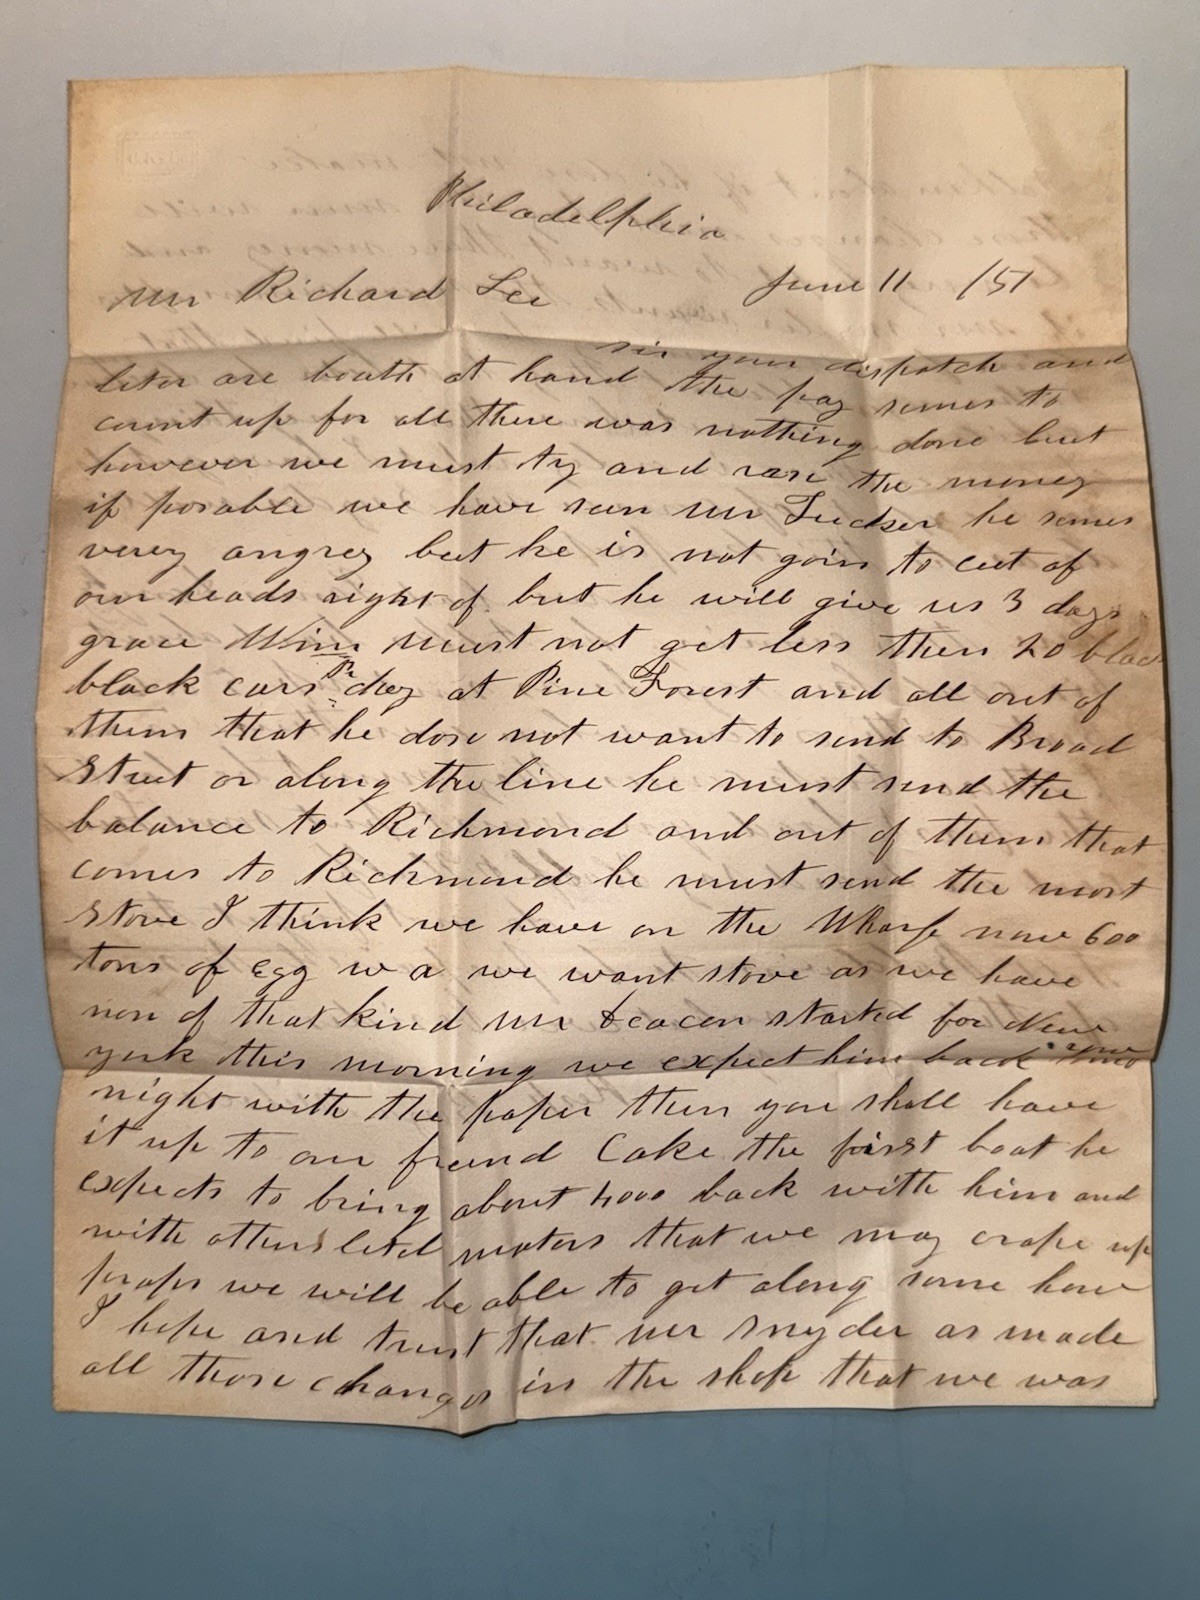 Philadelphia
Mr Richard Lee June 11 /51
sir your dispatch and
leter are boath at hand the pay semes to
count up for all there was nothing done but
however we must try and rase the money
if posable we have seen Mr Tucker he semes
verey angrey but he is not goin to cut of
our heads right of but he will give us 3 days
grace Wim must not get less then 20 black
black cars pr day at Pine Forest and all out of
them that he dose not want to send to Broad
Street or along the line he must send the
balance to Richmond and out of them that
comes to Richmond he must send the most
stove I think we have on the Wharfe now 600
tons of Egg w a we want stove as we have
non of that kind Mr Deacon started for New
york this morning we expect him back
night with the paper then you shall have
it up to our freend Cake the fairst boat he
expects to bring about 4000 back with him and
with others letel maters that we may crape up
praps we will be able to get along some how
I hope and trust that Mr Snyder as made
all those changes in the shop that we was